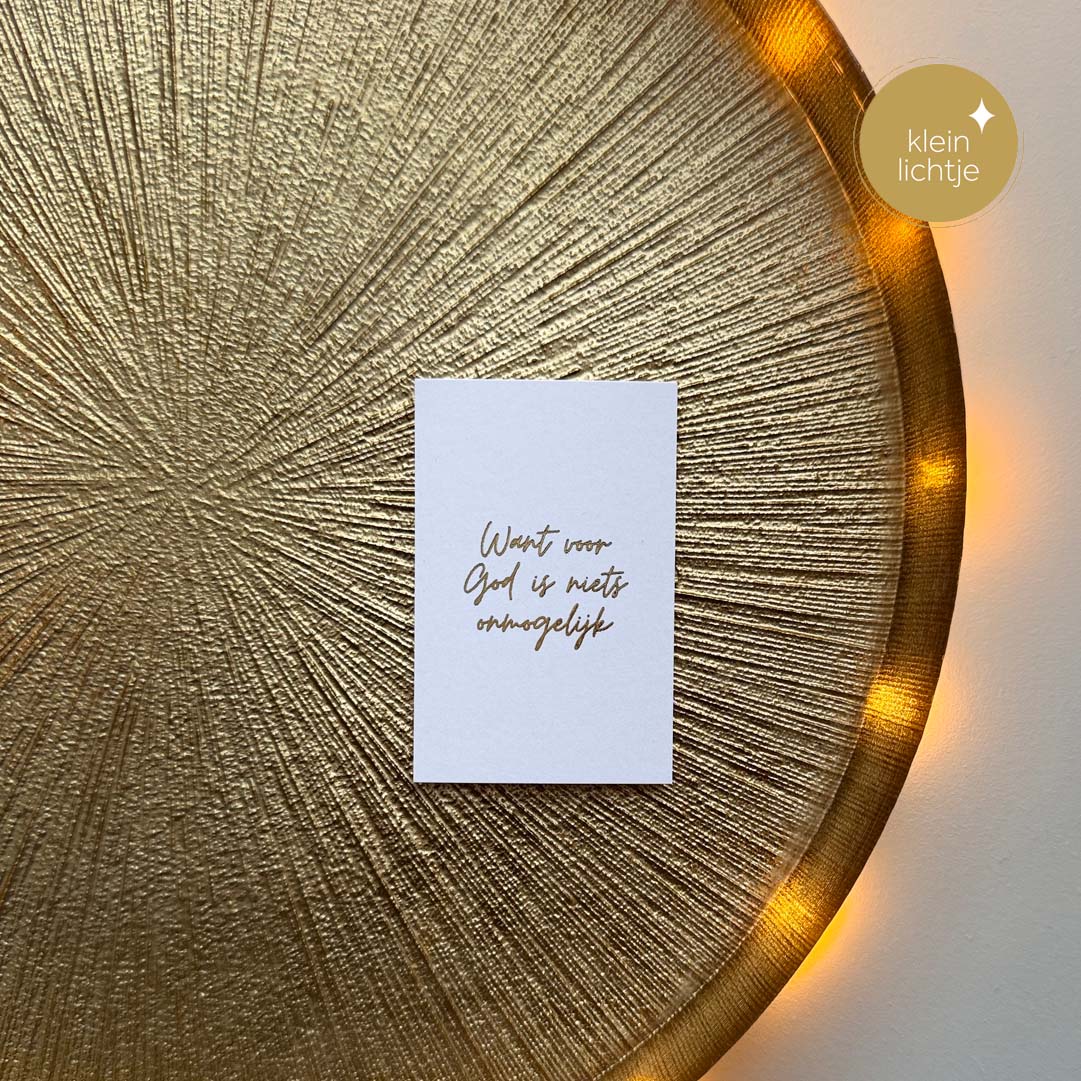 klein
lichtje
Want voor
God is niets
onmogelijk